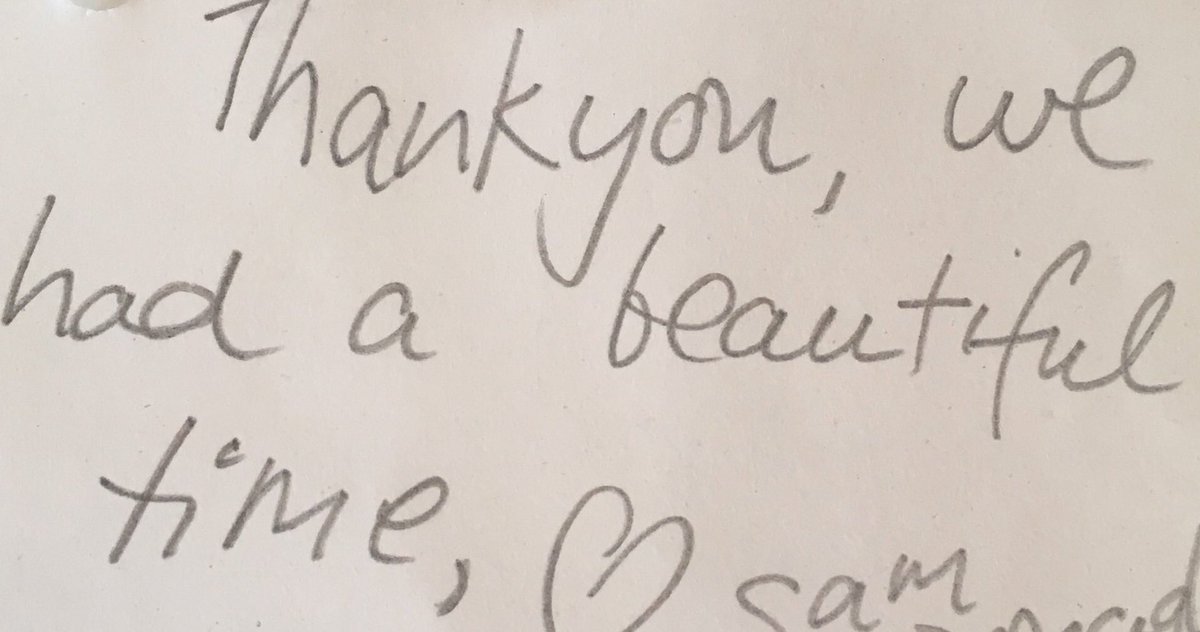 Thankyou, we
had a beautiful
time, ♡ sam